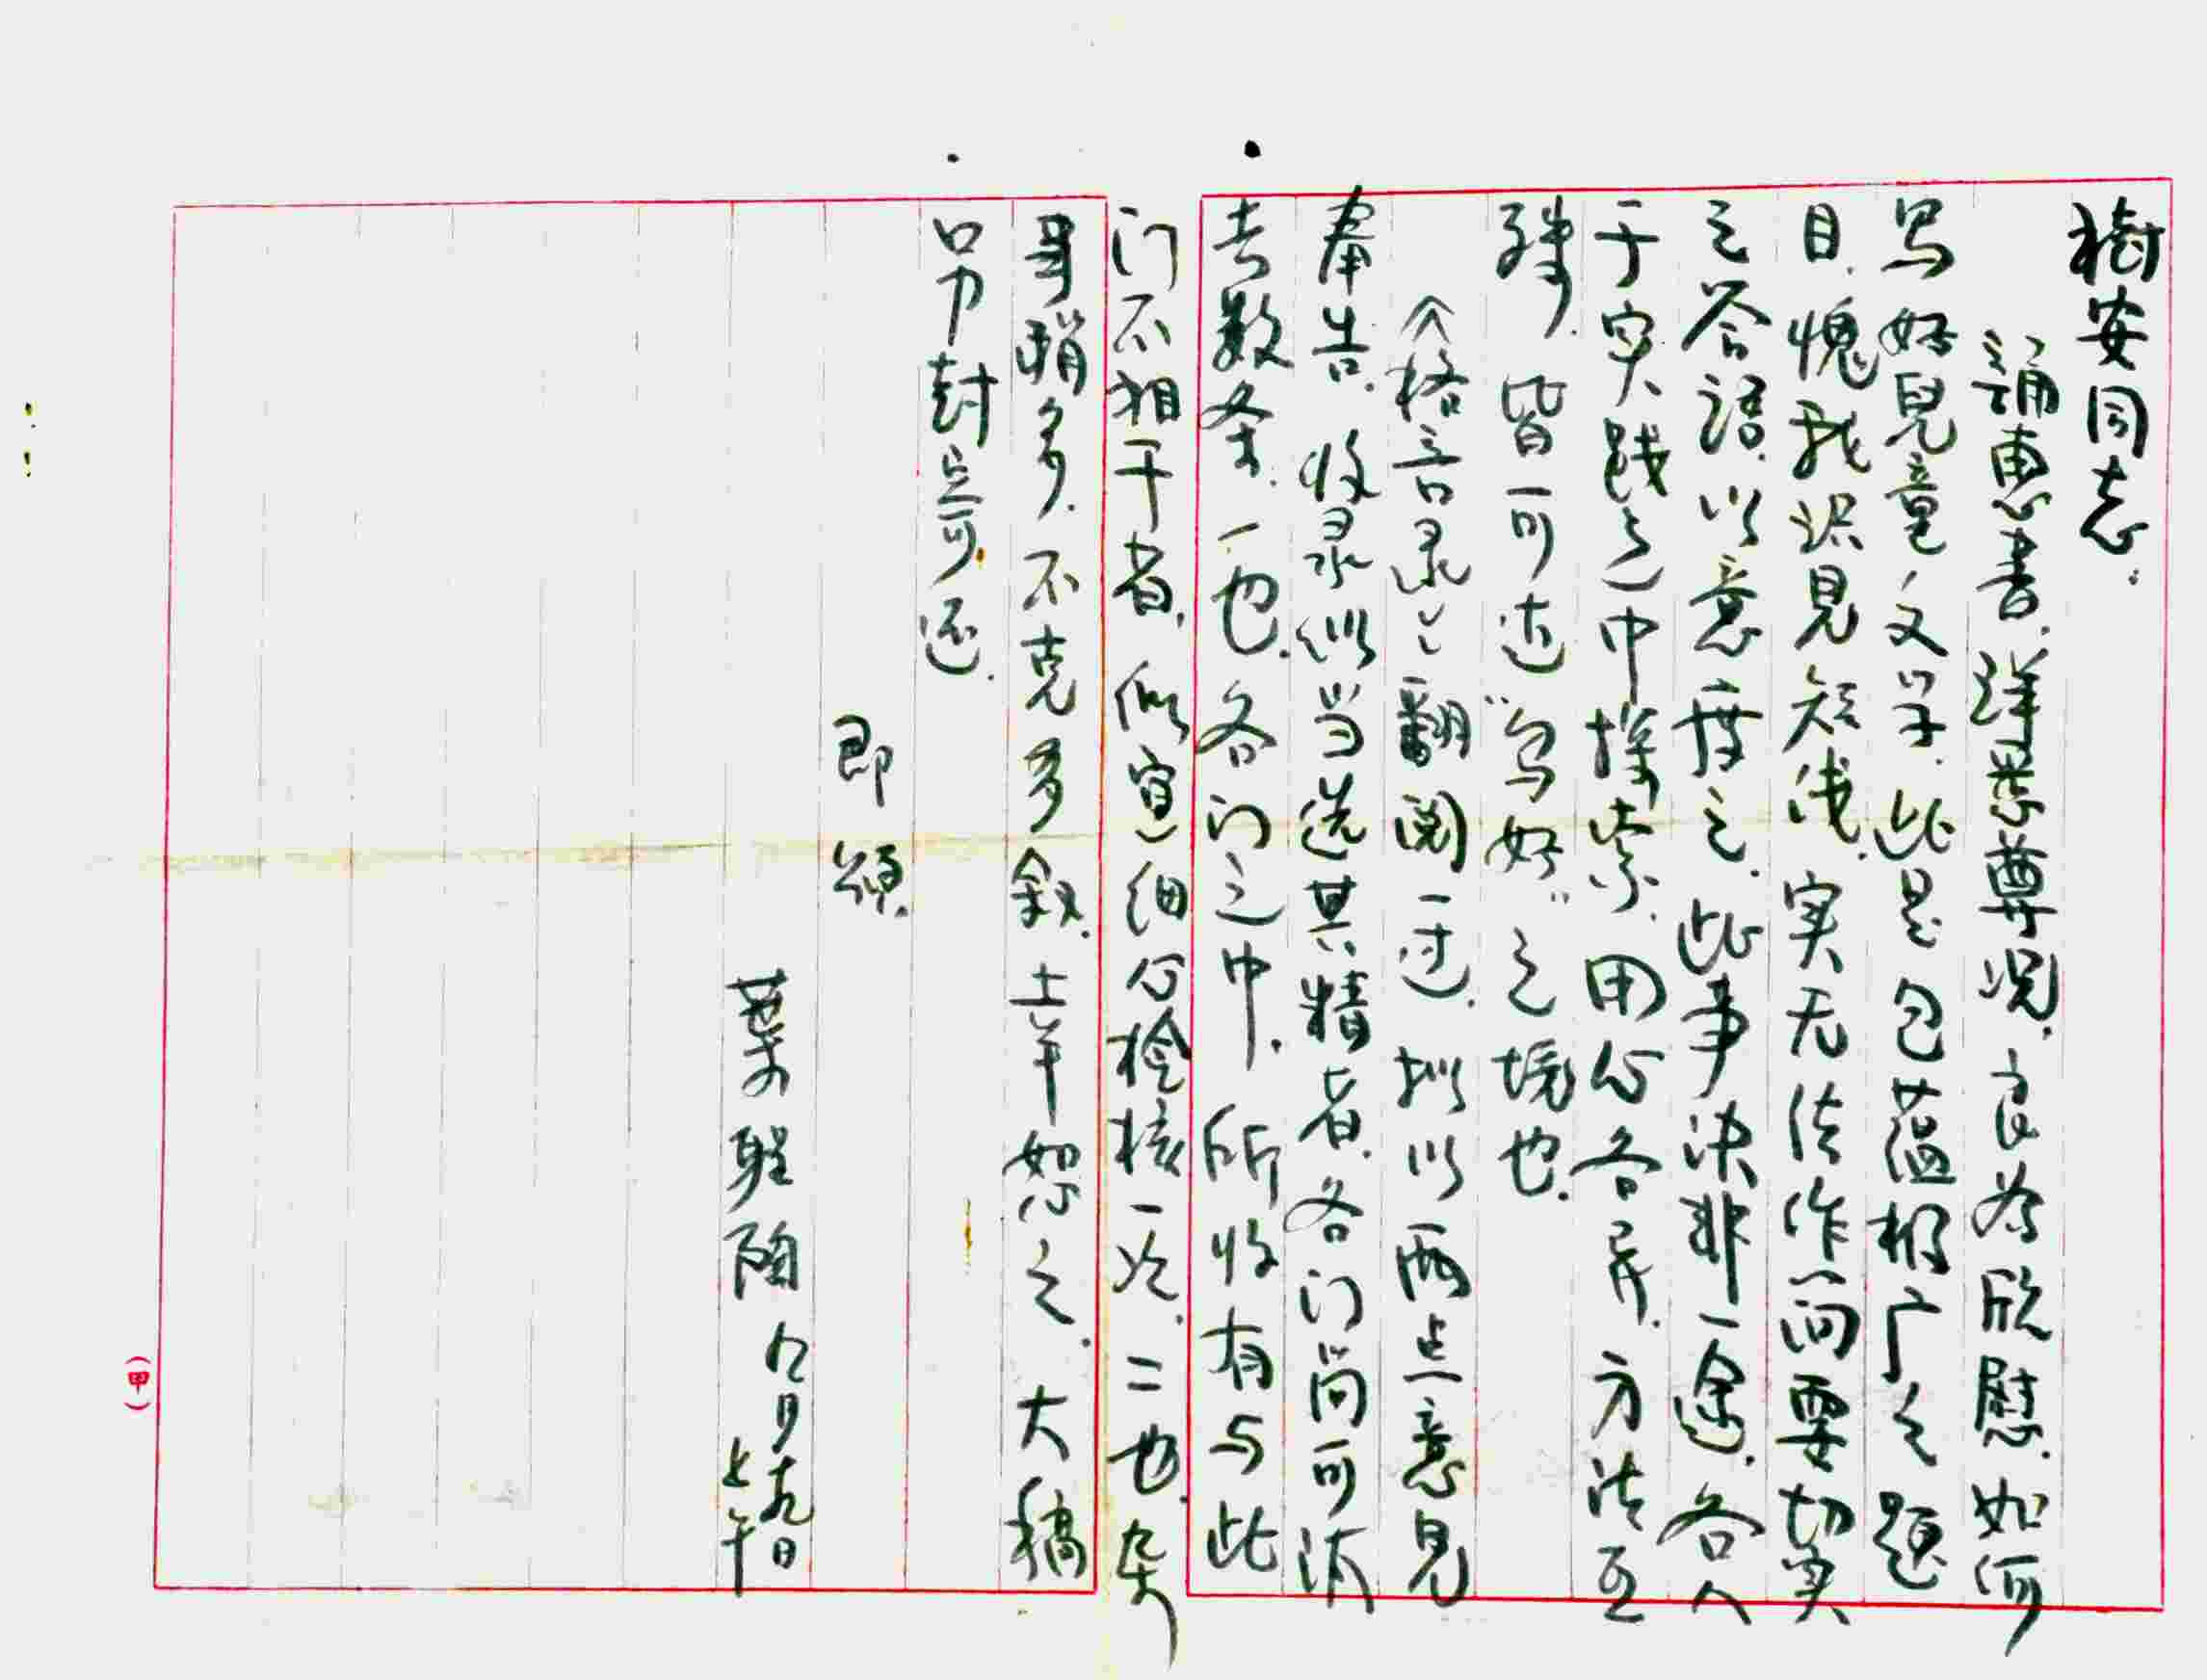 樹安同志.
诵惠书.详悉尊况.良为欣慰.如何
写好兒童文学.此是包蕴极广之题
目.愧我识见短浅.实无法作简要切实
之答语.以意度之.此事决非一途.各人
于实践之中探索.用心各异.方法互
殊.皆可达“写好”之境也.
《格言录》翻阅一过.拟以两点意见
奉告.收录似当选其精者.各门尚可汰
去数条.一也.各门之中.所收有与此
门不相干者.似宜细心检核一次.二也.杂
事稍多.不克多叙.幸恕之.大稿
另封寄还.
即颂.
葉聖陶 九月十九日
上午
(甲)